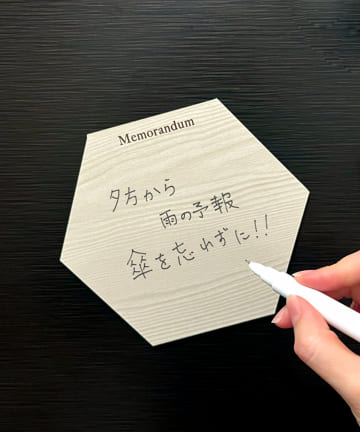 Memorandum
夕方から
雨の予報
傘を忘れずに!!